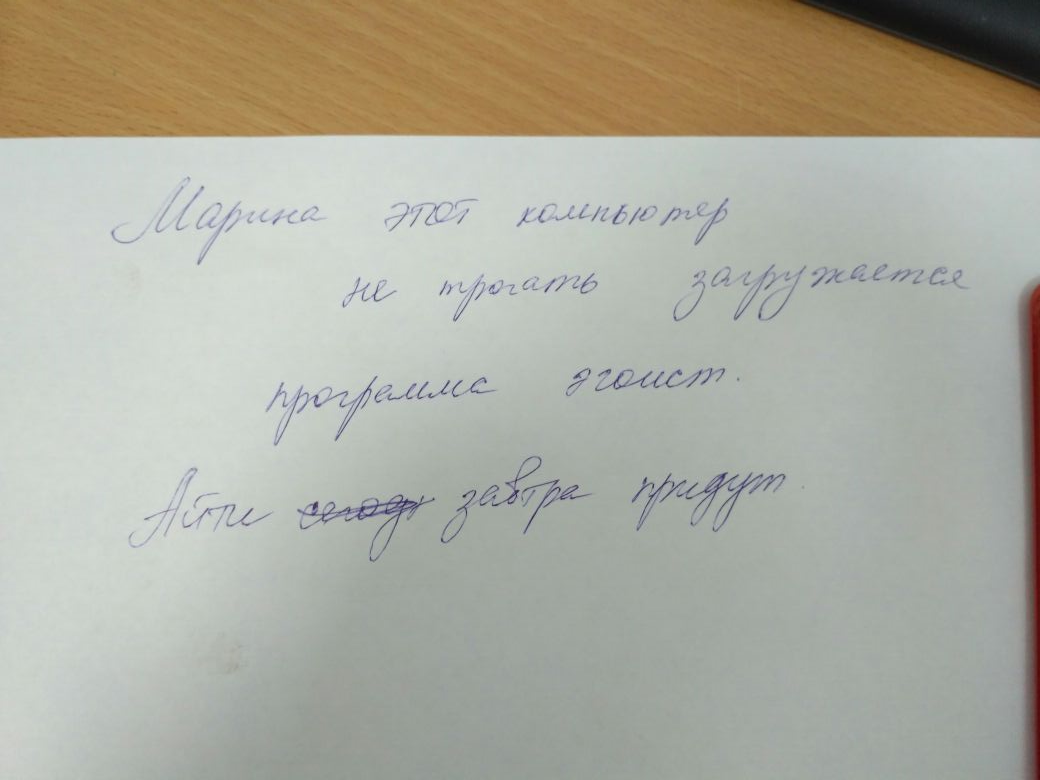 Марина этот компьютер
не трогать загружается
программа эгоист.
Айти завтра придут.